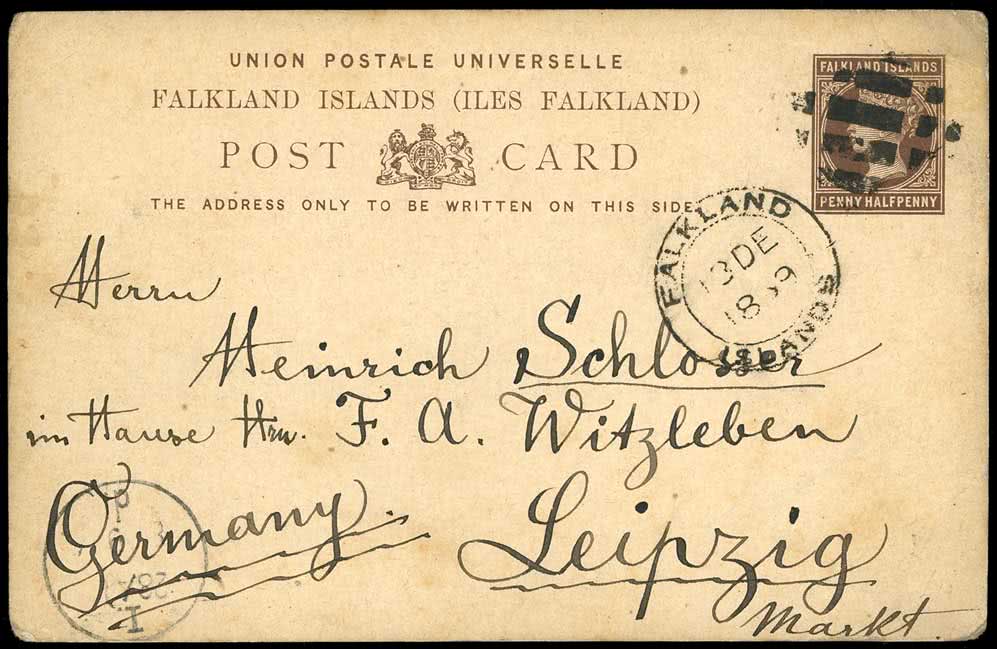 UNION POSTALE UNIVERSELLE
FALKLAND ISLANDS (ILES FALKLAND)
POST CARD
THE ADDRESS ONLY TO BE WRITTEN ON THIS SIDE
FALKLAND ISLANDS
PENNY HALFPENNY
FALKLAND ISLANDS
DE
Herrn
Heinrich Schlosser
im Hause Hrn. F. A. Witzleben
Germany.
Leipzig
Markt.